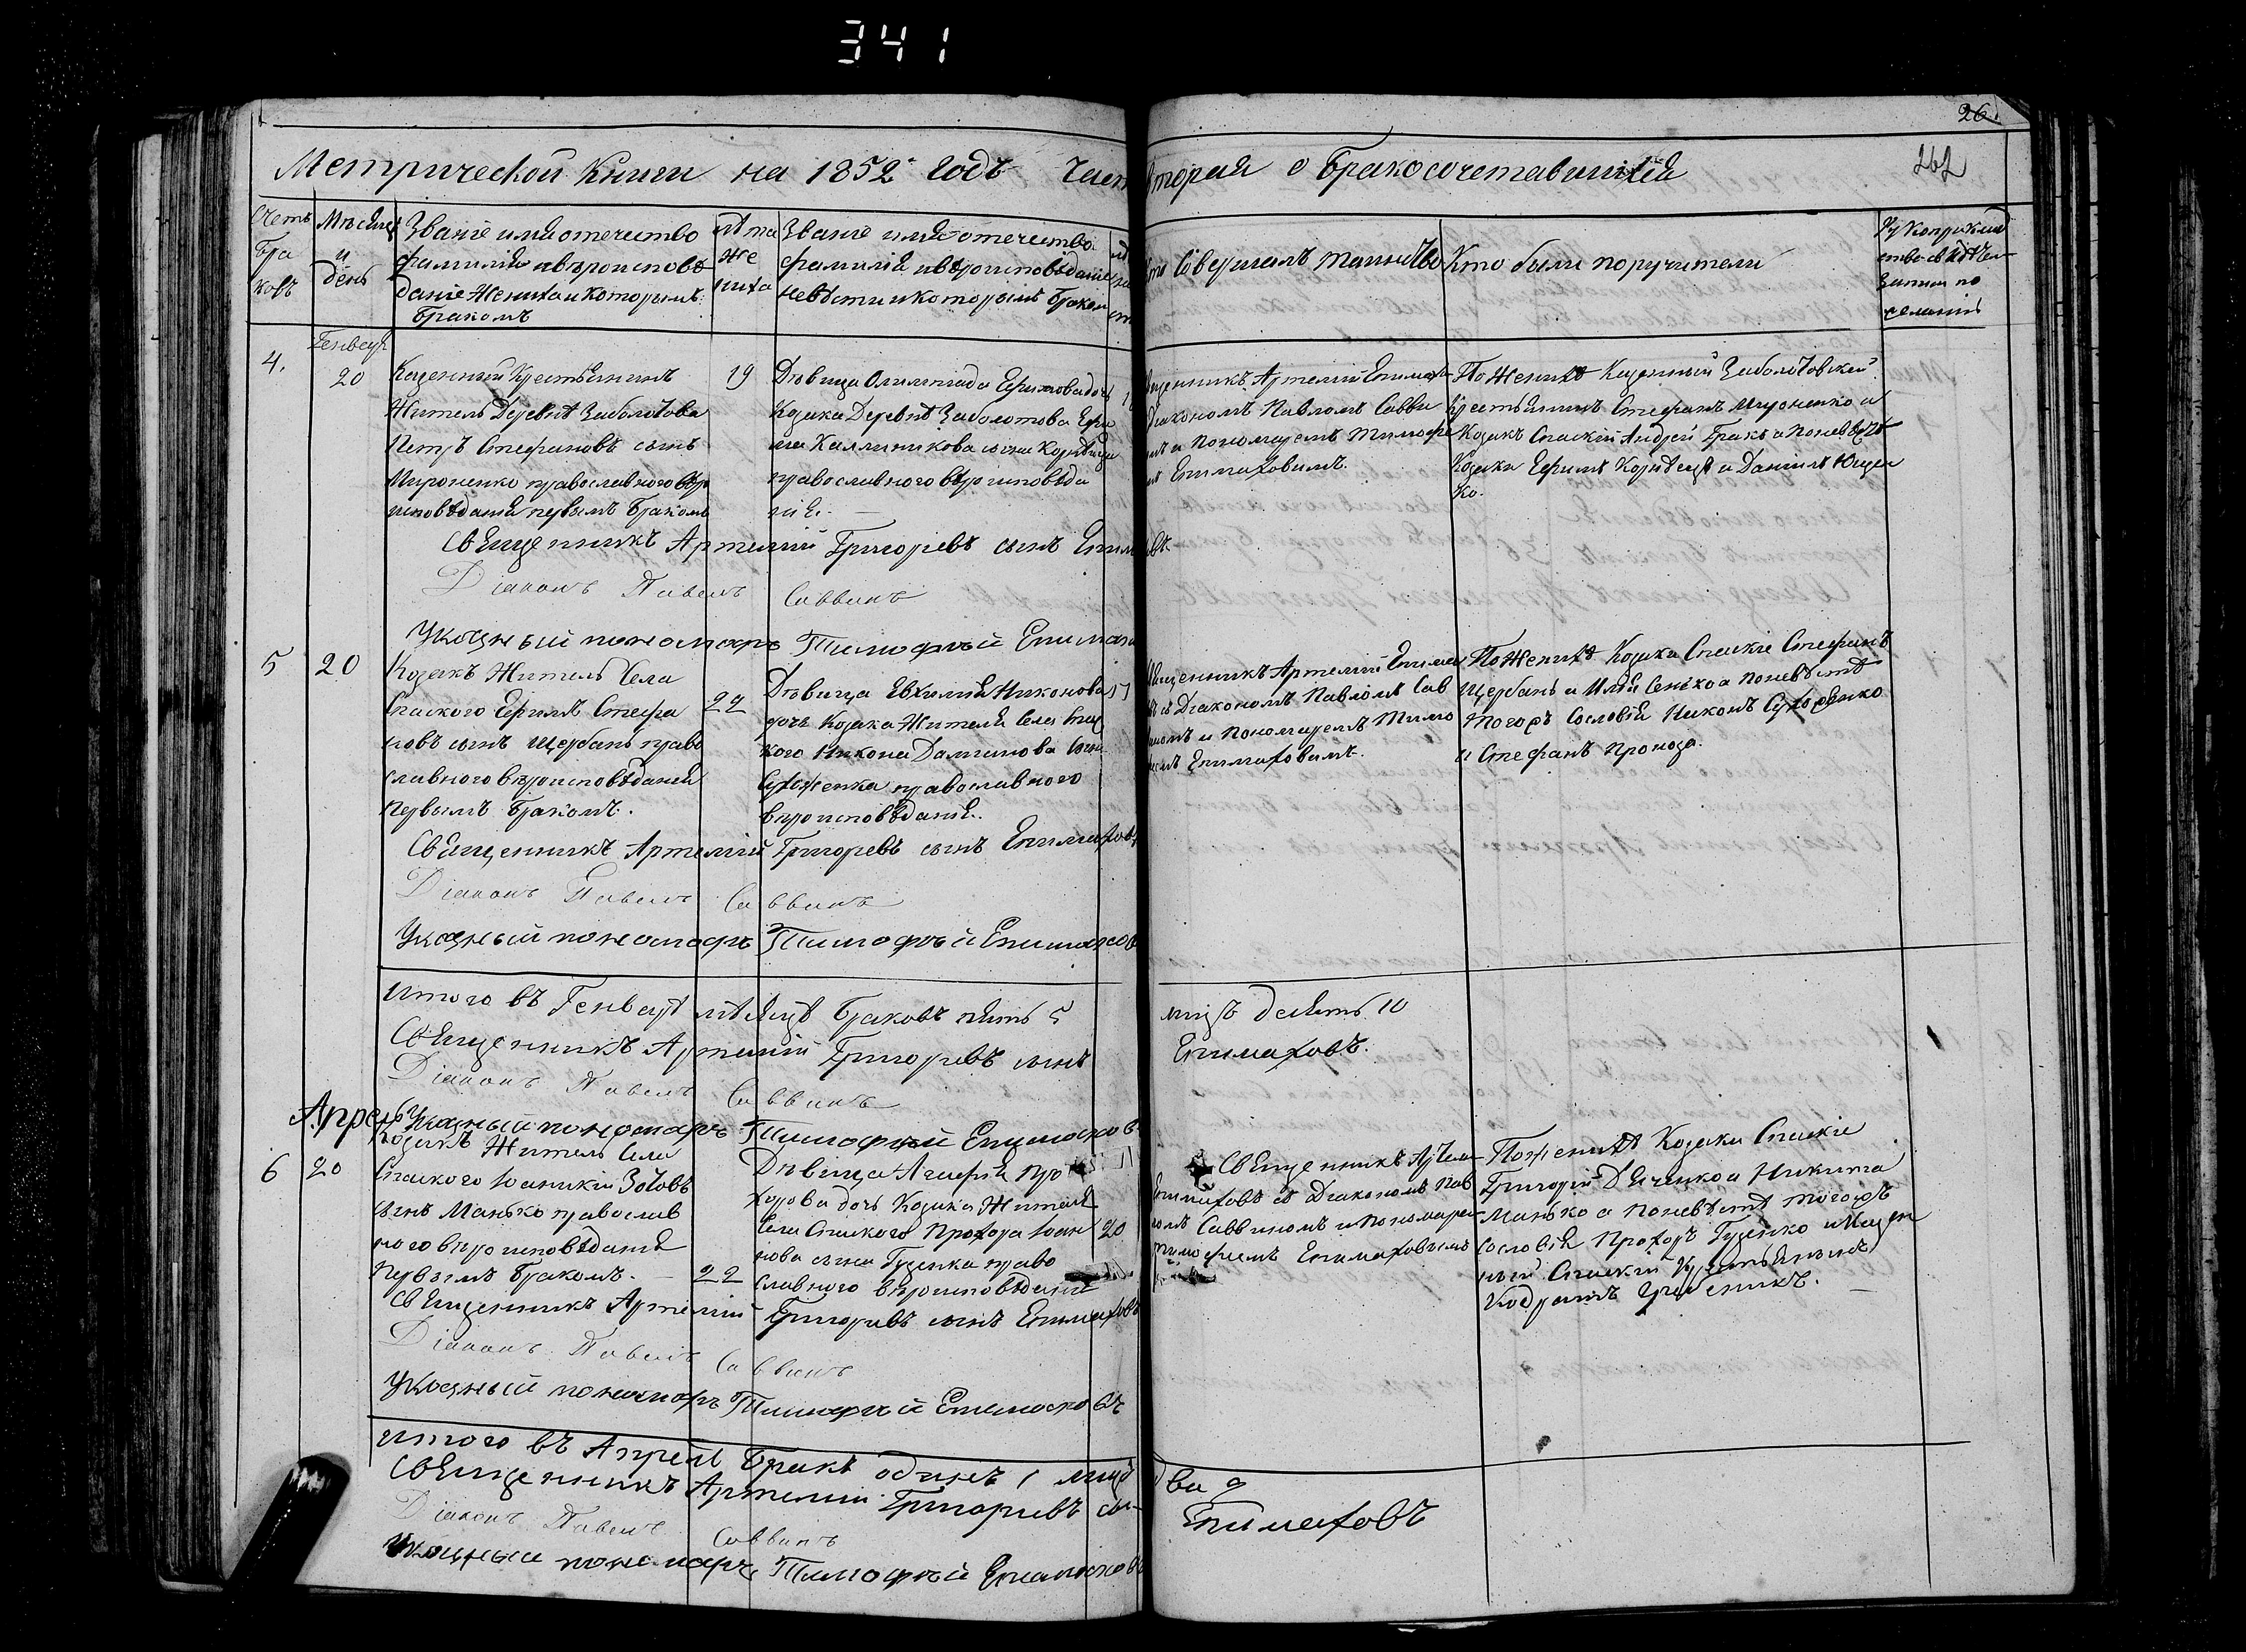 341
26.
262
Метрической Книги на 1852 годъ часть вторая о бракосочетавшихся
Счетъ браковъ
Мѣсяцъ и день
Званіе имя отечество
фамилія и вѣроисповѣ
даніе жениха и которымъ
бракомъ
лѣта
же
ниха
Званіе имя отечество
фамилія и вѣроисповѣданіе
невѣсти и которымъ бракомъ
Кто совершалъ таинство
Кто были поручители
Рукоприклад
ство свидѣтел
записи по
желанію
Генвар
4.
20
Казенный Крестьянинъ
Житель Деревни Заболотова
Петръ Стефановъ сынъ
Мироненко православного вѣро
исповѣданія первымъ бракомъ
19
Дѣвица Олимпіада Ефимова дочь
Козака Деревнѣ Заболотова Ефи
ма Каллиникова сына
православного вѣроисповѣда
нія.
Священникъ Артемій Епимахо
Діакономъ Павломъ Савви
номъ и Пономаремъ Тимофе
емъ Епимаховымъ.
По Женихѣ Казенный Заболотовской
Крестьянинъ Стефанъ Мироненко и
Козакъ Спаскій Андрей Гракъ а по невѣстѣ
Козаки Ефимъ и Даніилъ Ющен
ко.
Священникъ Артемій Григорьевъ сынъ Епимаховъ
Діаконъ Павелъ Саввинъ
Указный пономарь Тимофѣй Епимахов
5
20
Козакъ Житель Села
Спаского Ефимъ Стефа
новъ сынъ Щербань право
славного вѣроисповѣданія
первымъ бракомъ.
22
Дѣвица Евхимія Никонова
дочь Козака Жителя Села Спас
кого Никона сына
православного
вѣроисповѣданія.
17
Священникъ Артемій Епимах
въ съ Діакономъ Павломъ Сав
виномъ и Пономаремъ Тимо
феемъ Епимаховымъ.
По Женихѣ Козаки Спаскіе Стефанъ
Щербань и Илія Сенько а по невѣстѣ
того жъ Сословія Никонъ
и Стефанъ Проноза.
Священникъ Артемій Григорьевъ сынъ Епимаховъ
Діаконъ Павелъ Саввинъ
Указный пономарь Тимофѣй Епимахов
Итого въ Генварѣ мѣсяцѣ браковъ пять 5 лицъ десять 10
Священникъ Артемій Григорьевъ сынъ Епимаховъ.
Діаконъ Павелъ Саввинъ
Указный пономарь Тимофѣй Епимахов
Апрель
6
20
Козакъ Житель Села
Спаского Іоаникій Зотовъ
сынъ Манько православ
ного вѣроисповѣданія
первымъ бракомъ.
22
Дѣвица Агафія Про
хорова дочь Козака Жителя
Села Спаского Прохора Іоан
нова сына Гуценка право
славного вѣроисповѣданія
20
Священникъ Артем
Епимаховъ съ Діакономъ Пав
ломъ Саввиномъ и Пономаре
Тимофеемъ Епимаховымъ
По женихѣ Козаки Спаскіе
Григорій Дяченко и Никита
Манько а по невѣстѣ того жъ
сословія Прохоръ Гуценко и Казен
ный Спаскій Крестьянинъ
Кодратъ Гребеникъ.
Священникъ Артемій Григорьевъ сынъ Епимаховъ
Діаконъ Павелъ Саввинъ
Указный пономарь Тимофѣй Епимаховъ
Итого въ Апрелѣ бракъ одинъ 1 лицъ два 2
Священникъ Артемій Григорьевъ сы- Епимаховъ
Діаконъ Павелъ Саввинъ
Указный пономарь Тимофѣй Епимахов